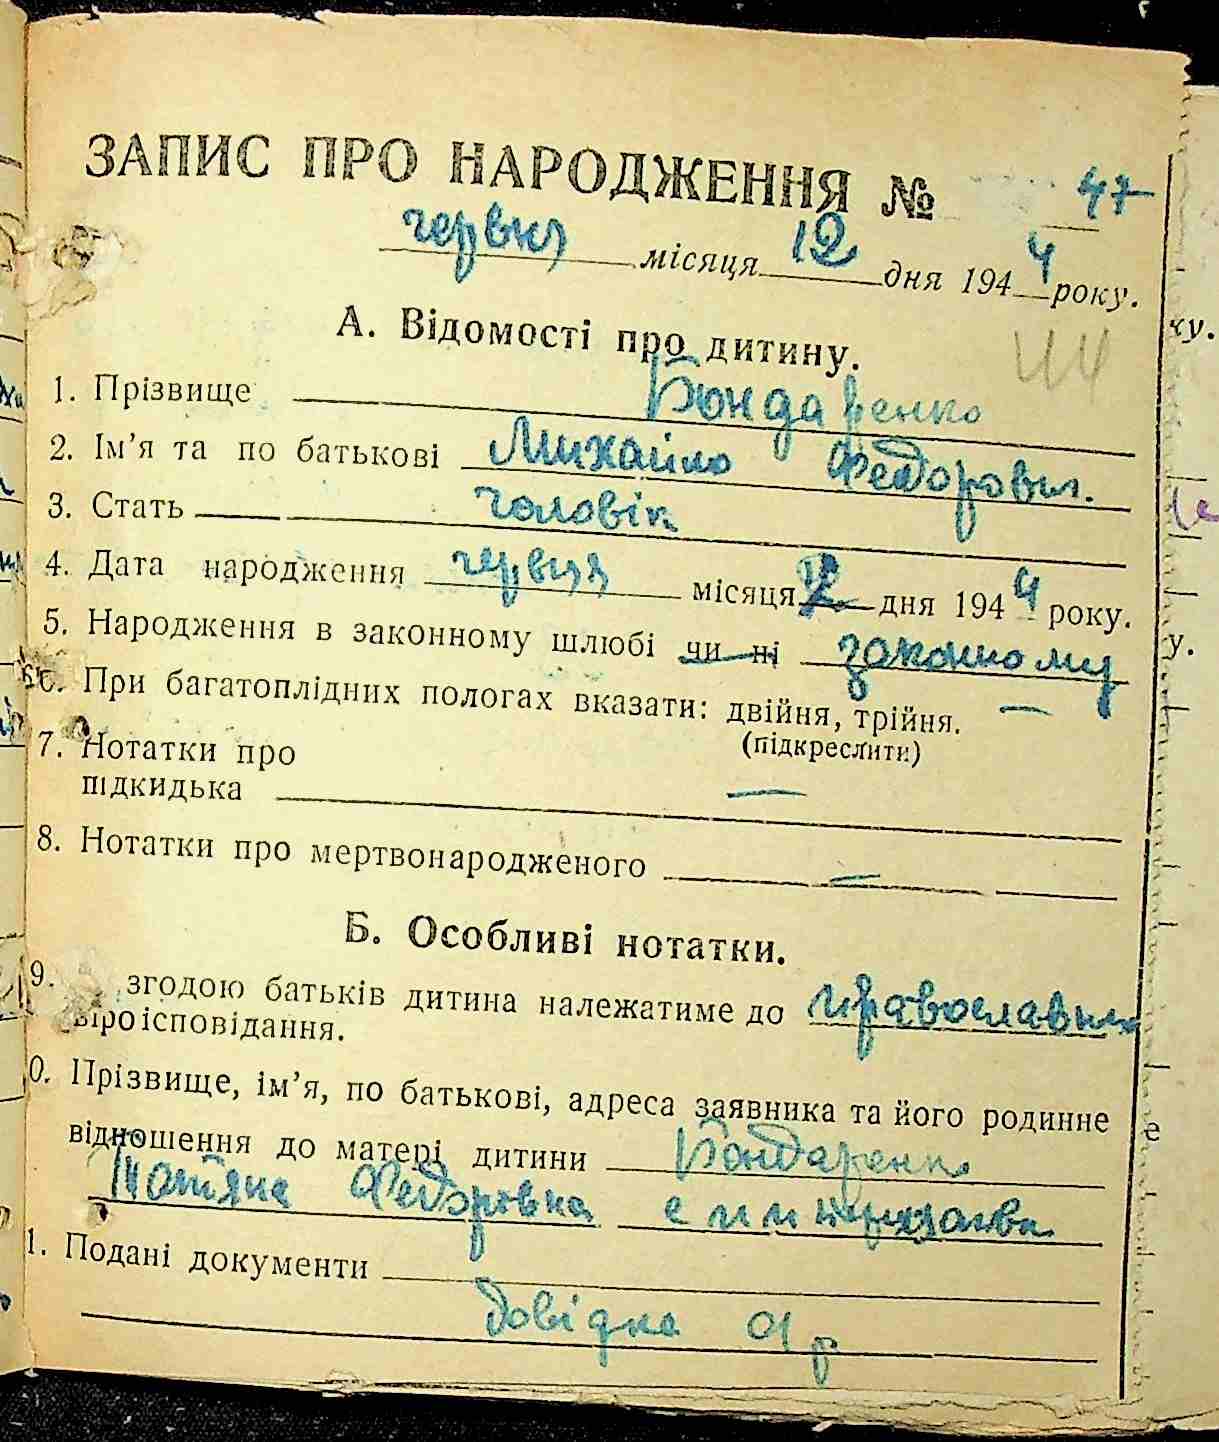 ЗАПИС ПРО НАРОДЖЕННЯ № 47
червня місяця 12 дня 1944 року.
А. Відомості про дитину.
1. Прізвище Бондаренко
2. Ім'я та по батькові Михайло Федорович.
3. Стать чоловік
4. Дата народження червня місяця дня 1944 року.
5. Народження в законному шлюбі чи ні законному
6. При багатоплідних пологах вказати: двійня, трійня. —
(підкреслити)
7. Нотатки про
підкидька —
8. Нотатки про мертвонародженого —
Б. Особливі нотатки.
9. згодою батьків дитина належатиме до православних
віроісповідання.
0. Прізвище, ім'я, по батькові, адреса заявника та його родинне
відношення до матері дитини Бондаренко
Татяна Федоровна
1. Подані документи
довідка